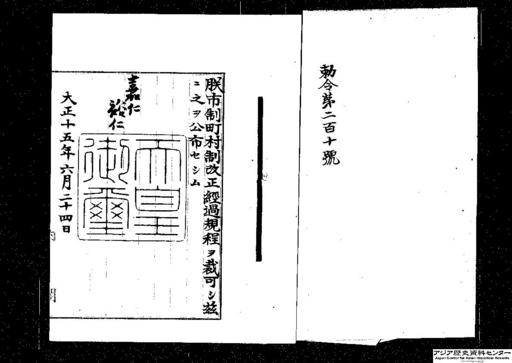 勅令第二百十號
朕市制町村制改正經過規程ヲ裁可シ茲
ニ之ヲ公布セシム
嘉仁
裕仁
天皇御璽
大正十五年六月二十四日
アジア歴史資料センター
Japan Center for Asian Historical Records